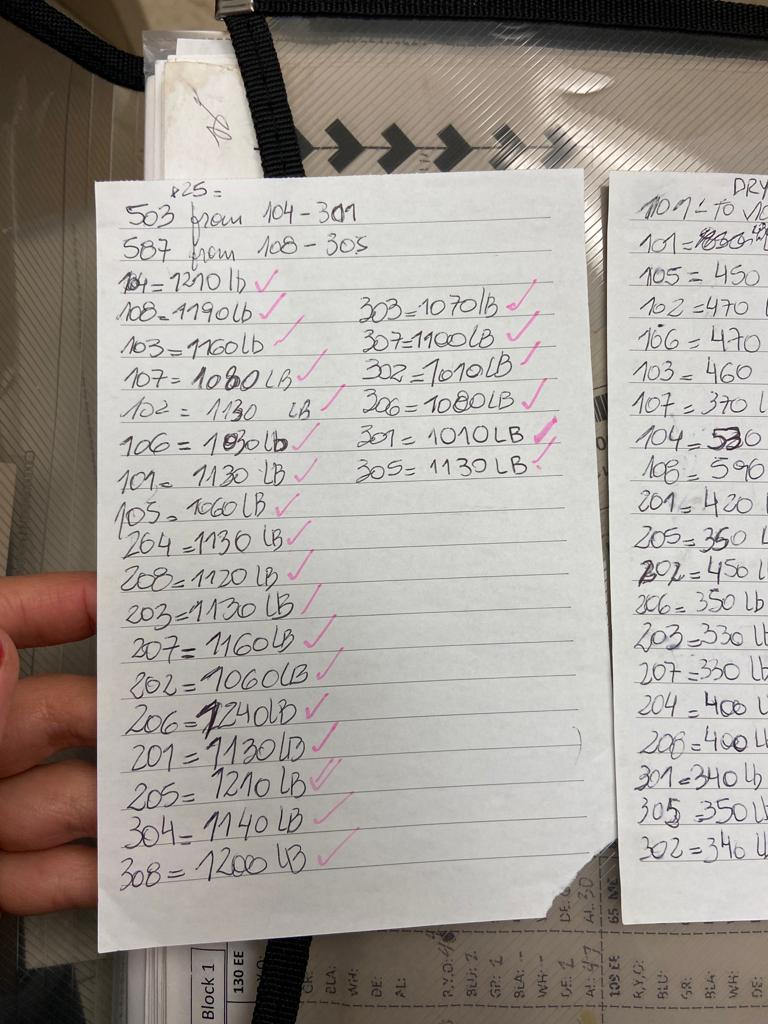 *25=
503 from 104-301
587 from 108-305
104=1210 lb
108=1190lb
103=1160lb
107=1080 LB
102= 1130 LB
106=1030lb
101= 1130 LB
105=1060 LB
204=1130 LB
208=1120 LB
203=1130 LB
207=1160LB
202=1060LB
206=1240LB
201=1130LB
205=1210 LB
304=1140 LB
308=1200 LB
303=1070LB
307=1100LB
302=1010LB
306=1080LB
301=1010LB
305=1130LB
DRY
101=
105=450
102=470
106=470
103=460
107=370
104=530
108=590
201=420
205=350
202=450 lb
206=350 lb
203=330 lb
207=330 lb
204=400
208=400
301=340 lb
305=350
302=340
Block 1
130 EE
BLA:
WH:
DE:
AL:
R,Y,O:
BLU: 2
GR: 1
BLA: -
WH: -
DE: 1
AL: 47
109 EE
R,Y,O:
BLU:
GR:
BLA:
WH:
DE: